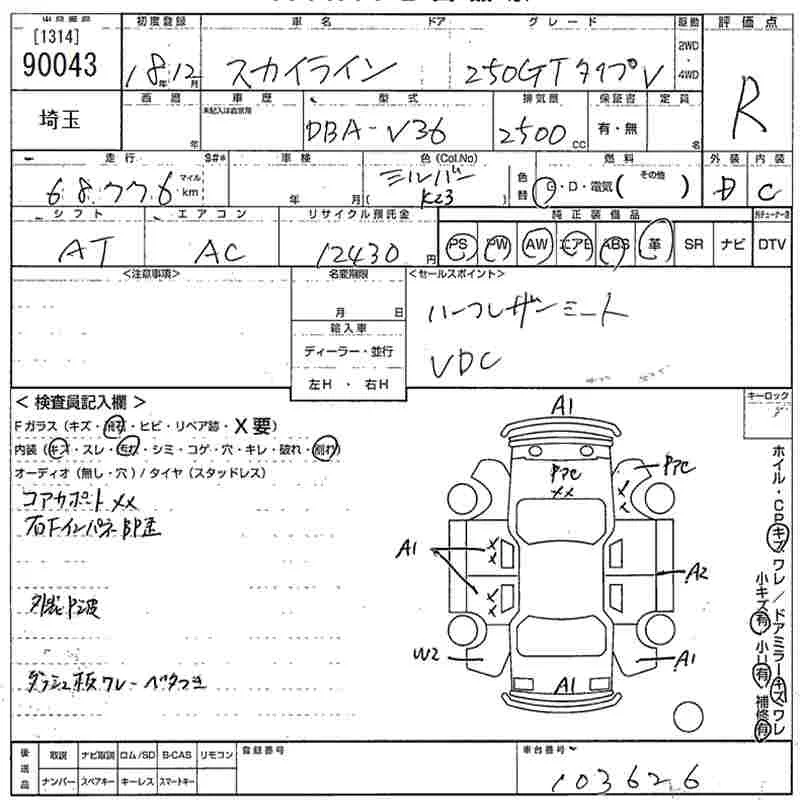 [1314]
90043
埼玉
初度登録
18年12月
車名
ドア
スカイライン
グレード
250GTタイプV
駆動
2WD
・
4WD
評価点
R
西暦
年
車歴
型式
DBA-V36
排気量
2500 cc
保証書
有・無
定員
名
走行
68776
マイル
km
S#*
車検
年 月
色(Col.No)
シルバー
( K23 )
色替
燃料
G・D・電気( その他 )
外装
D
内装
C
シフト
AT
エアコン
AC
リサイクル預託金
12430 円
純正装備品
PS PW AW エアB ABS 革 SR ナビ DTV
<注意事項>
名変期限
月 日
輸入車
ディーラー・並行
左H ・ 右H
<セールスポイント>
ハーフレザーシート
VDC
<検査員記入欄>
Fガラス(キズ・飛石・ヒビ・リペア跡・X要)
内装(キズ・スレ・汚れ・シミ・コゲ・穴・キレ・破れ・割れ)
オーディオ(無し・穴)/タイヤ(スタッドレス)
コアサポートXX
右Fインパネ
外装
ダッシュ板ワレーベタつき
キーロック
A1
P7C
XX
P7C
XX
A1
XX
XX
A2
W2
A1
A1
ホイル・CPキズワレ/ドアミラーキズワレ
小キズ有 小U有 補修有
後送品
取説 ナビ取説 ロム/SD B-CAS リモコン
ナンバー スペアキー キーレス スマートキー
登録番号
車台番号
103626